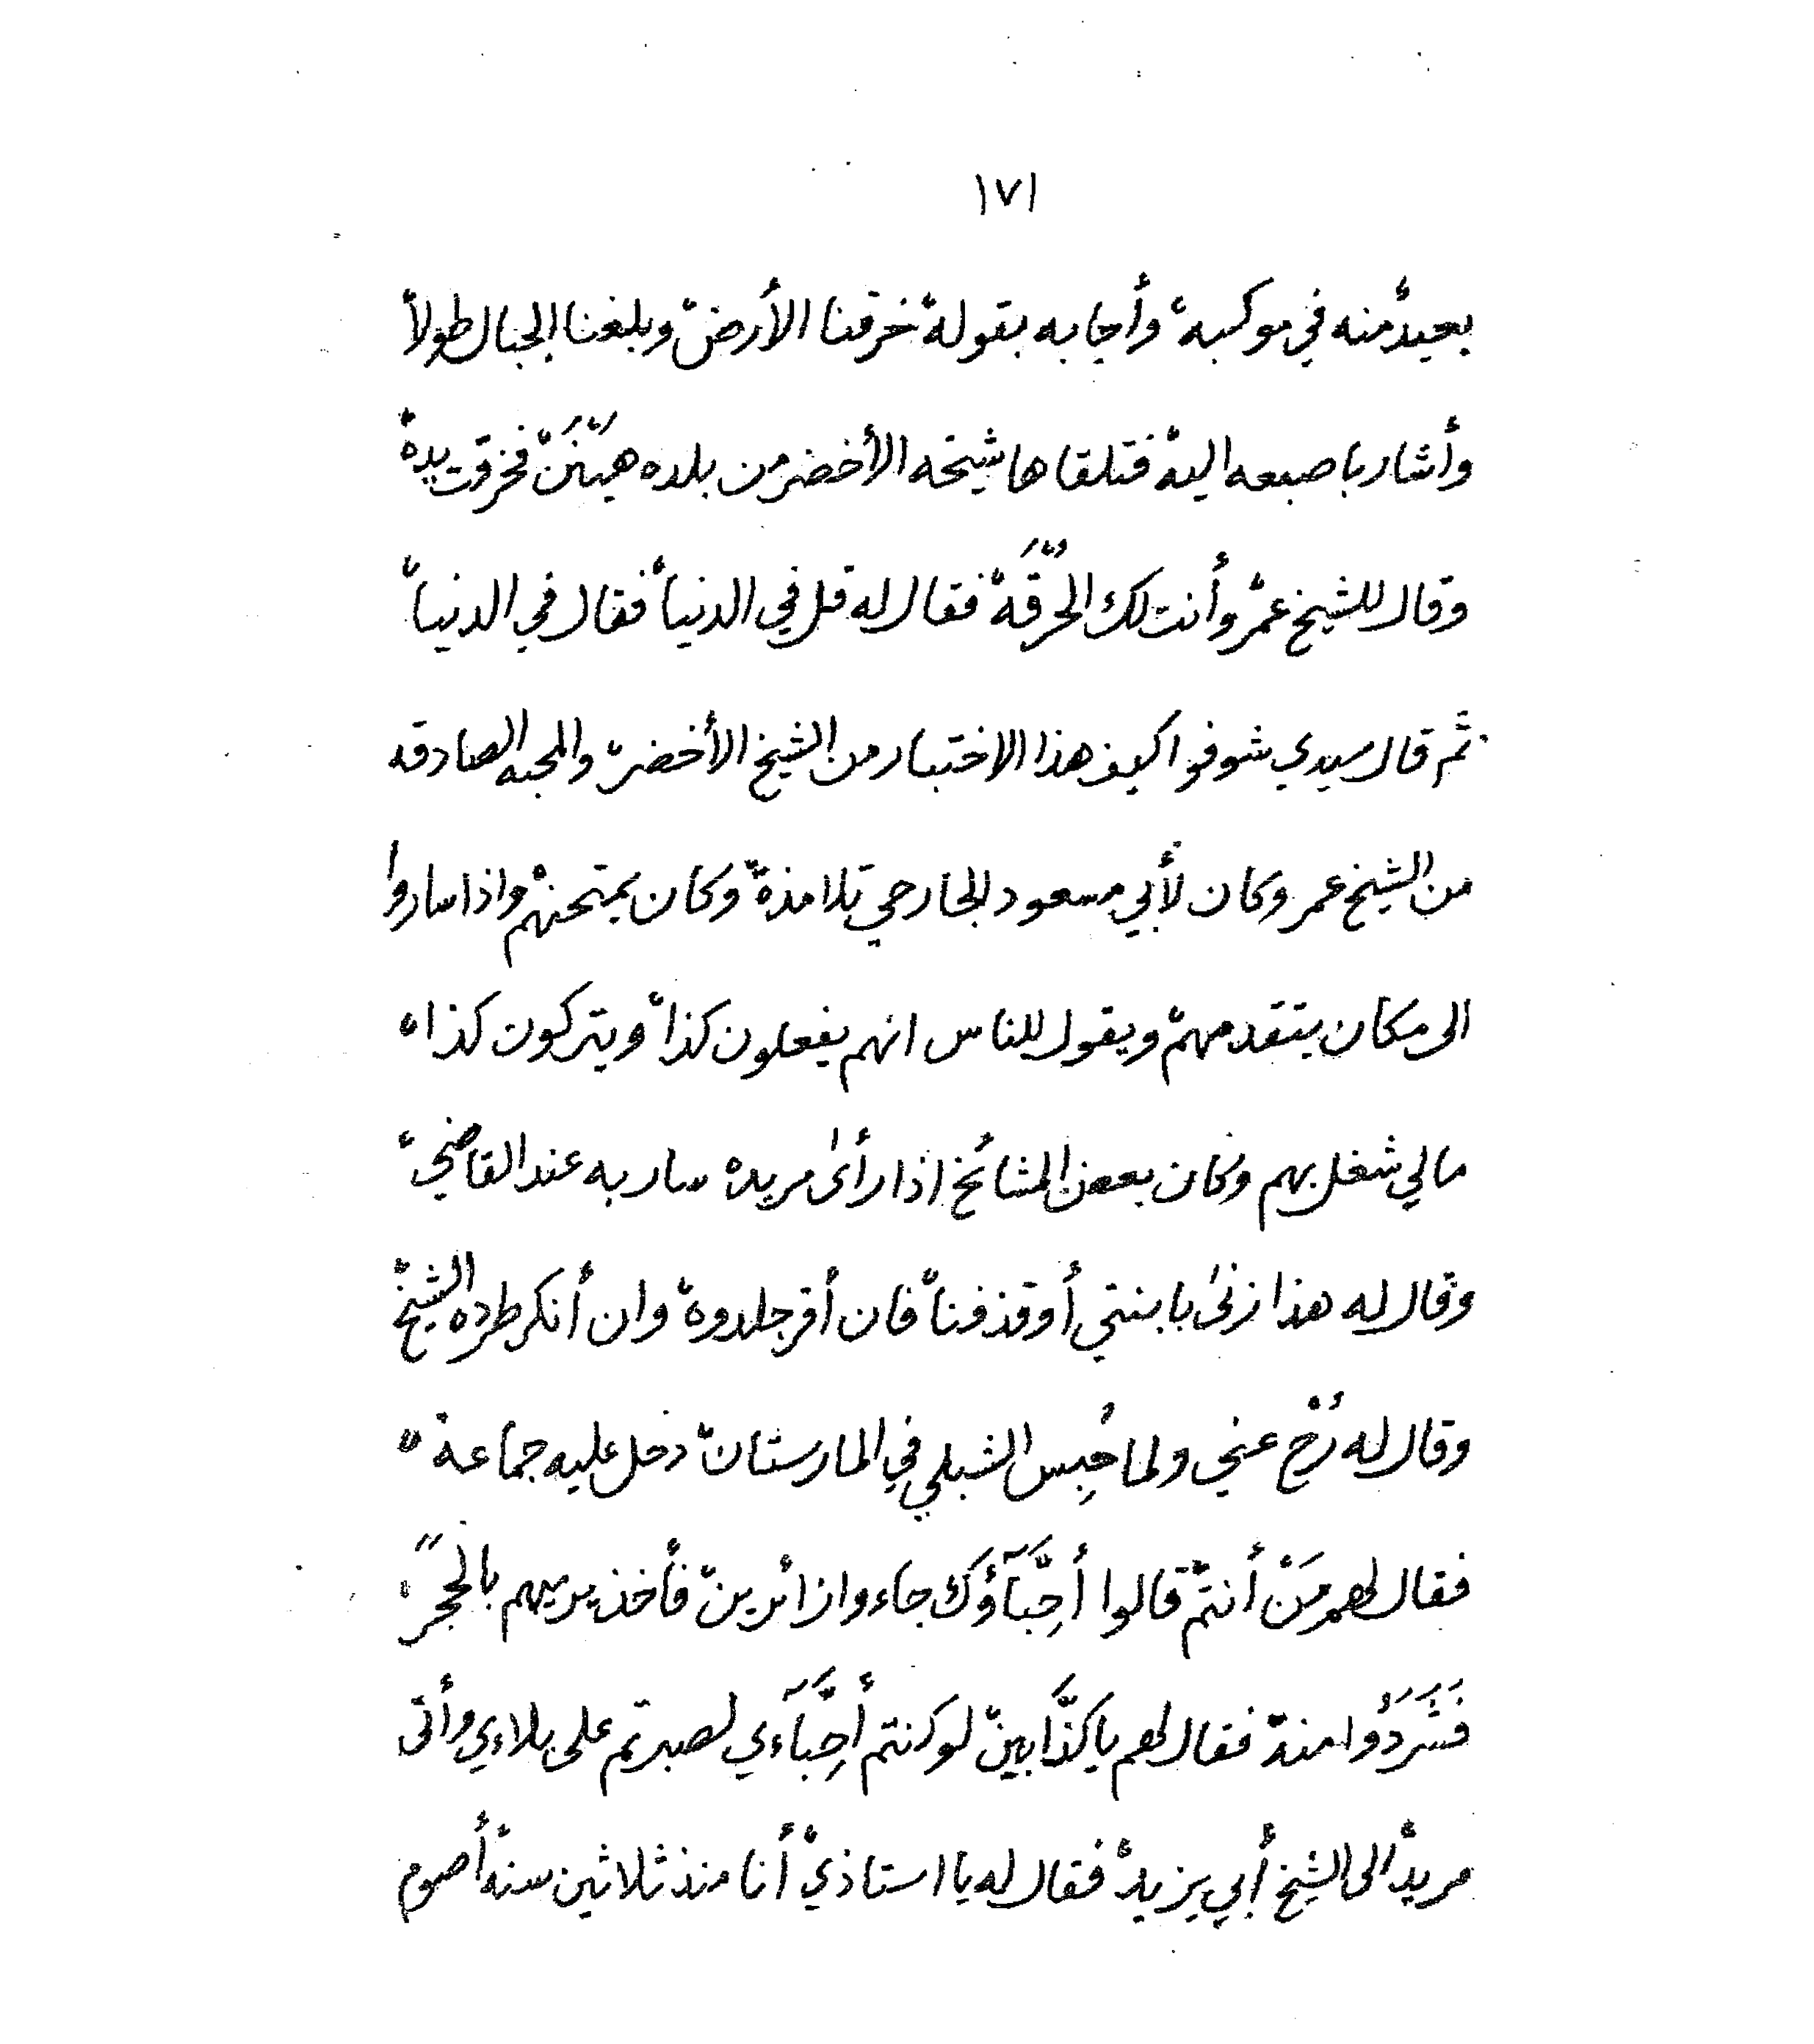 ١٧١
بعيدٌ منه في موكبه، وأجابه بقوله خرقنا الأرض وبلغنا الجبال طولاً
وأشار باصبعه اليه فتلقاها شيخه الأخضر من بلده هَيْنَن فخرقت يده
وقال للشيخ عمر وأنت لك الحُرْقَة فقال له قل في الدنيا فقال في الدنيا
ثم قال سيدي شوفوا كيف هذا الاختبار من الشيخ الأخضر والمحبه الصادقه
من الشيخ عمر وكان لأبي مسعود الجارحي تلامذة وكان يمتحنهم واذا ساروا
الى مكان يتقدمهم ويقول للناس انهم يفعلون كذا ويتركون كذا
مالي شغل بهم وكان بعض المشائخ اذا رأىٰ مريده سار به عند القاضي
وقال له هذا زنىٰ بابنتي أو قذفنا فان أقر جلدوه وان أنكر طرده الشيخ
وقال له رُحْ عني ولما حُبِس الشبلي في المارستان دخل عليه جماعة
فقال لهم مَنْ أنتم قالوا أَحِبَّآؤُكَ جاءوا زائرين فأخذ يرميهم بالحجر
فَشَرَدُوا منه فقال لهم يا كذَّابين لو كنتم أَحِبَّآءي لصبرتم على بلاءي وأتى
مريدٌ الى الشيخ أبي يزيد فقال له يا استاذي أنا منذ ثلاثين سنة أصوم